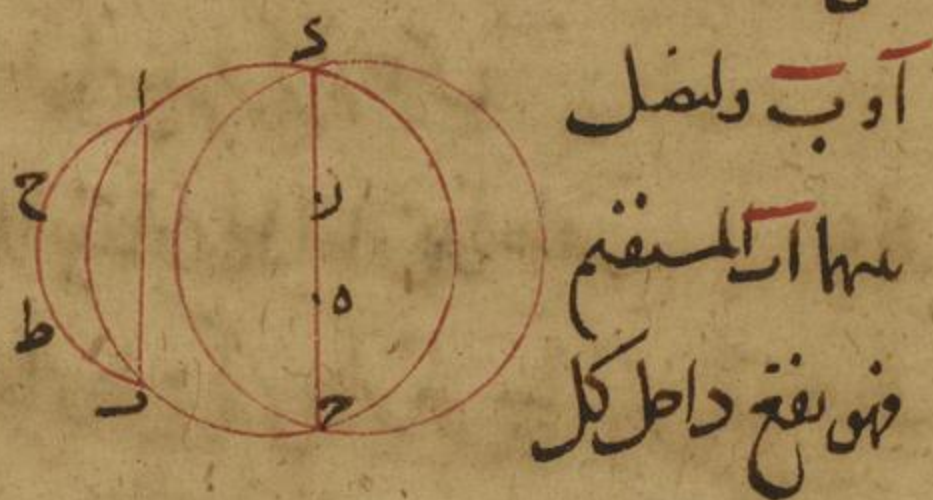 ا و ب ولنصل
بينهما اب المستقيم
فهو يقع داخل كل
ا
ب
ح
ط
د
ز
ه
ج